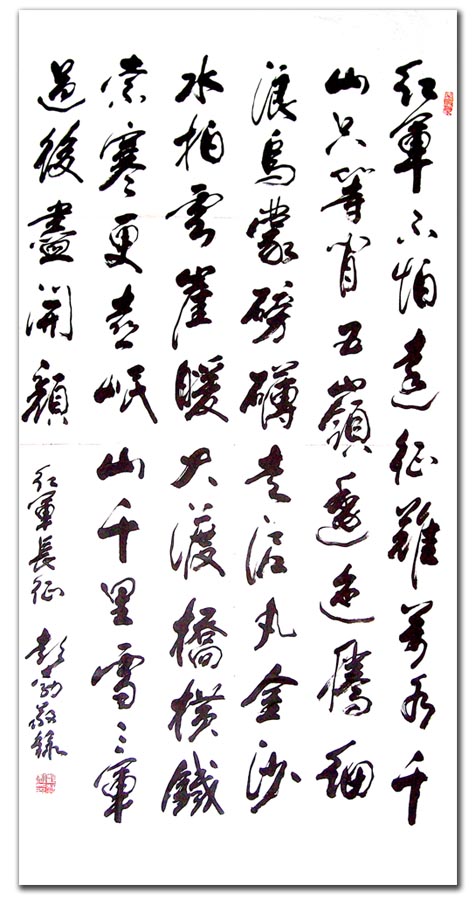 红軍不怕遠征難萬水千
山只等閒五嶺逶迤騰細
浪烏蒙磅礴走泥丸金沙
水拍雲崖暖大渡橋橫鐵
索寒更喜岷山千里雪三軍
過後盡開顏
红軍長征 彭勃敬錄